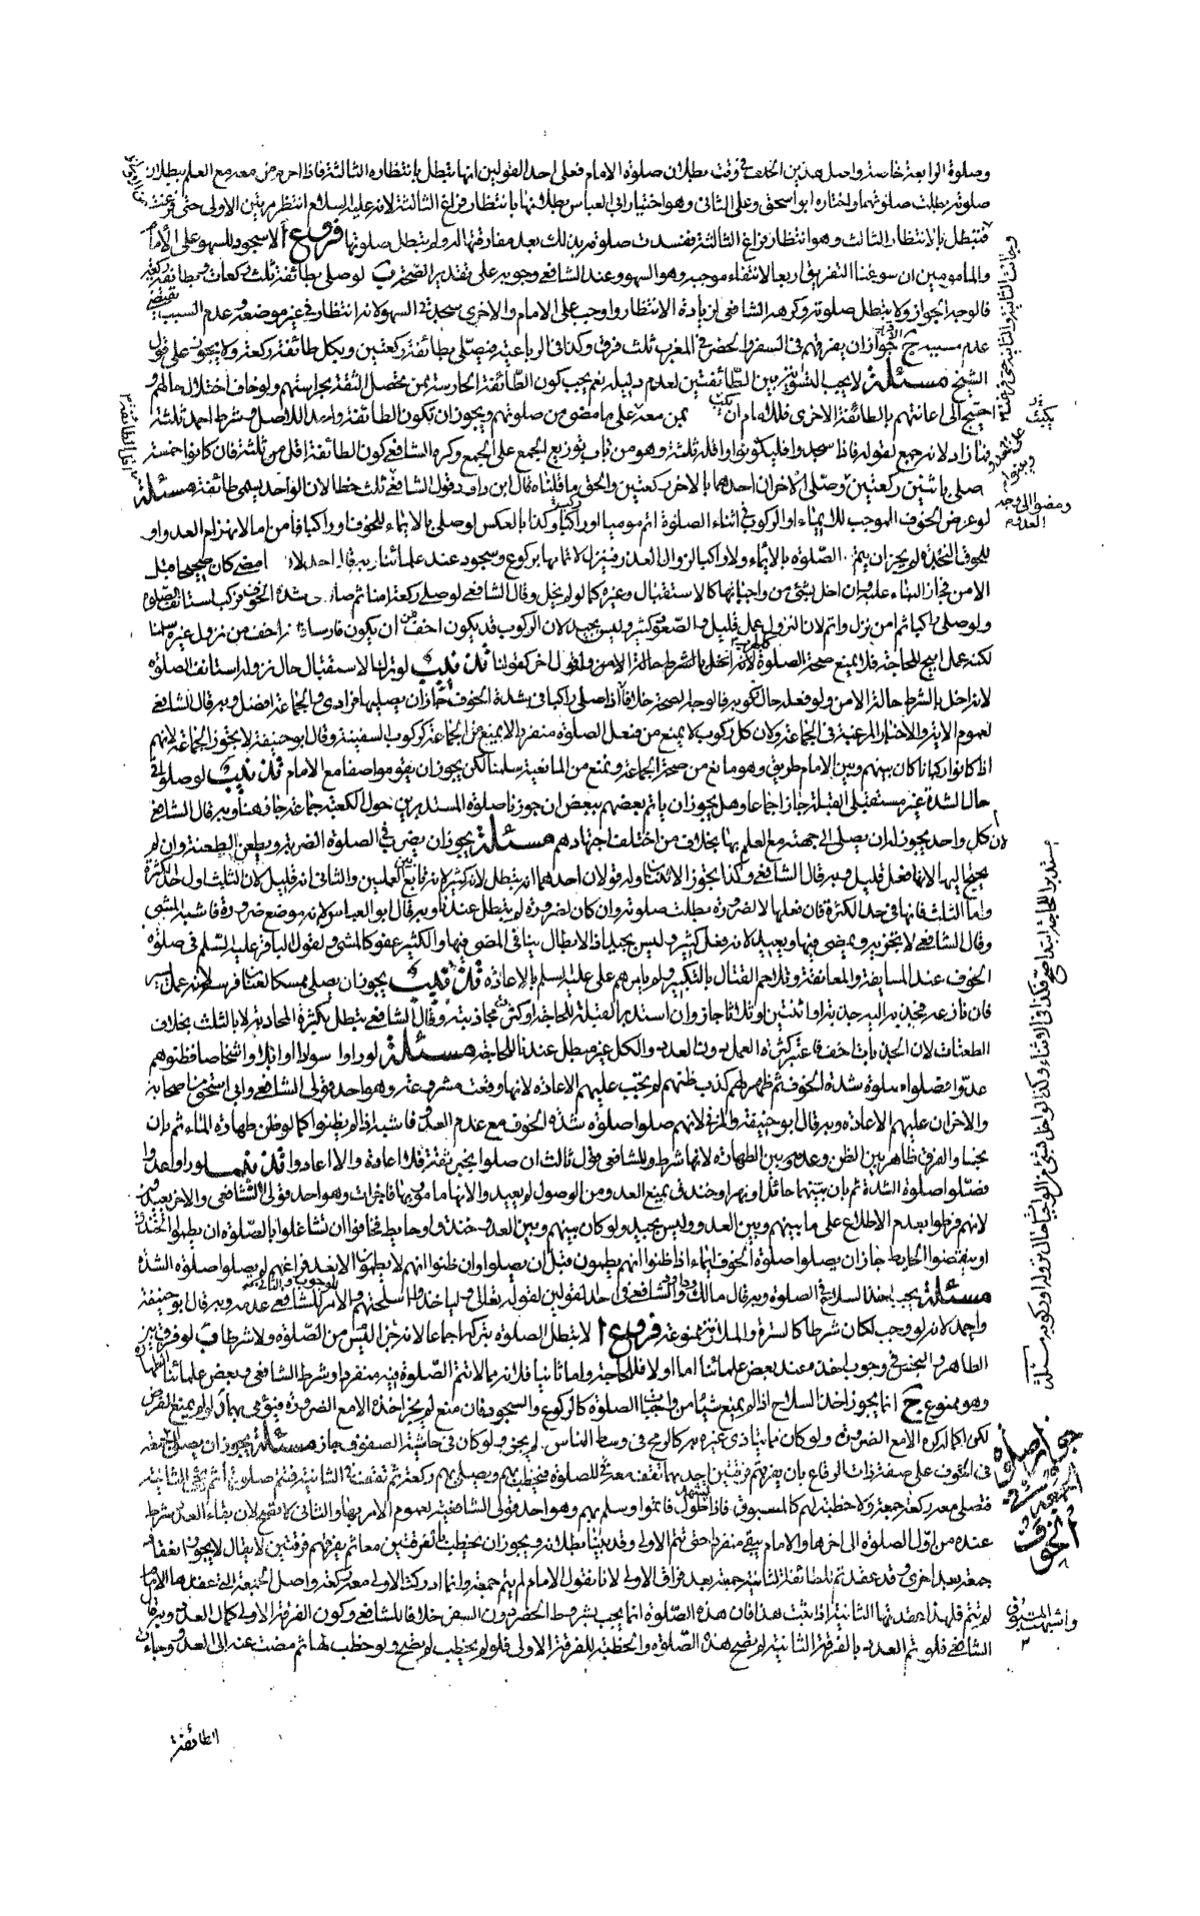 وصلوة الرابعة خاصة واصل هذين الخلاف في وقت بطلان صلوة الامام فعلى احد القولين انها تبطل بانتظاره الثالثة فاذا احرم من معه مع العلم ببطلان
صلوته بطلت صلوتهما واختاره ابو اسحق وعلى الثاني وهو اختيار ابي العباس بطلانها بانتظار فراغ الثالثة لانه عليه السلام انتظر مرتين الاولى حتى فرغت
فتبطل بالانتظار الثالث وهو انتظار فراغ الثالثة ففسدت صلوته بذلك بعد مفارقتها له ولم تبطل صلوتها فروع ا لا سجود للسهو على الامام
والمأمومين ان سوغنا التفريق اربعا لانتفاء موجبه وهو السهو وعند الشافعي وجوبه على تقدير الصحة ب لو صلى بطائفة ثلث ركعات وبطائفة ركعة
فالوجه الجواز ولا تبطل صلوته وكرهه الشافعي لزيادة الانتظار واوجب على الامام والاخرى سجدتي السهو لانه انتظار في غير موضعه وعدم السبب يقتضي
عدم مسببه ج يجوز ان يفرقهم في السفر والحضر في المغرب ثلث فرق وكذا في الرباعية فيصلى بطائفة ركعتين وبكل طائفة ركعة ولا يجوز على قول
الشيخ مسئلة لا يجب التسوية بين الطائفتين لعدم دليله نعم يجب كون الطائفة الحارسة ممن تحصل الثقة بحراستهم ولو خاف اختلال حالهم و
احتيج الى اعانتهم بالطائفة الاخرى فللامام ان يكتب بمن معه على ما مضى من صلوتهم ويجوز ان تكون الطائفة واحدا للاصل وشرط احمد ثلثة
فما زاد لانه جمع لقوله فاذا سجدوا فليكونوا واقله ثلثة وهو من باب توزيع الجمع على الجمع وكره الشافعي كون الطائفة اقل من ثلثة فان كانوا خمسة
صلى باثنين ركعتين وصلى الاخران احدهما بالاخر ركعتين والحق ما قلناه قال ابن داود قول الشافعي ثلث خطا لان الواحد يسمى طائفة مسئلة
لو عرض الخوف الموجب للايماء او الركوب في اثناء الصلوة اتم موميا او راكبا وكذا بالعكس لو صلى بالايماء للخوف او راكبا فأمن اما لانهزام العدو او
للحوق النجدة لم يجز ان يتم الصلوة بالايماء ولا راكبا لزوال العذر فينزل لاتمامها بركوع وسجود عند علمائنا وبه قال احمد لان امضى كان صحيحا قبل
الامن فجاز البناء عليه وان اخل بشئ من واجباتها كالاستقبال وغيره كما لو لم يخل وقال الشافعي لو صلى ركعة امنا ثم صار شدة الخوف فركب استانف الصلوة
ولو صلى راكبا ثم امن نزل واتم لان النزول عمل قليل والصعود كثير وليس بجيد لان الركوب قد يكون اخف من ان يكون فارسا اخف من نزول غيره سلمنا
لكنه عمل ابيح للحاجة فلا يمنع صحة الصلوة لانه اخل بالشرط حالة الامن وله قول اخر كقولنا تذنيب لو ترك الاستقبال حال نزوله استانف الصلوة
لانه اخل بالشرط حالة الامن ولو فعله حال ركوبه فالوجه الصحة خلافا اذا صلى راكبا في شدة الخوف جاز ان يصليها فرادى والجماعة افضل وبه قال الشافعي
لعموم الاية والاخبار المرغبة في الجماعة ولان كل ركوب لا يمنع من فعل الصلوة منفردا لا يمنع من الجماعة كركوب السفينة وقال ابو حنيفة لا يجوز الجماعة لانهم
اذا كانوا ركبانا كان بينهم وبين الامام طريق وهو مانع من صحة الجماعة ونمنع من المانعية سلمنا لكن يجوز ان يقوموا صفا مع الامام تذنيب لو صلوا في
حال الشدة غير مستقبلي القبلة جاز اجماعا وهل يجوز ان ياتم بعضهم ببعض ان جوزنا صلوة المستديرين حول الكعبة جماعة جاز هنا وبه قال الشافعي
لان كل واحد يجوز له ان يصلى الى جهته مع العلم بها بخلاف من اختلف اجتهادهم مسئلة يجوز ان يضرب في الصلوة الضربة ويطعن الطعنة وان لم
يحتج اليها لانها فعل قليل وبه قال الشافعي وكذا يجوز الاثنتان وله قولان احدهما انه يبطل لانه كثير لانه تابع بين العملين والثاني انه قليل لان الثلث اول حد الكثرة
واما الثلث فانها في حد الكثرة فان فعلها لا لضرورة بطلت صلوته وان كان لضرورة لم يبطل عندنا وبه قال ابو العباس لانه موضع ضرورة فاشبه المشي
وقال الشافعي لا يجزيه ويمضى فيها ويعيد لانه فعل كثير وليس بجيد اذ الابطال ينافي المضى فيها والكثير عفو كالمشي ولقول الباقر عليه السلم في صلوة
الخوف عند المسايفة والمعانقة وتلاحم القتال بالتكبير ولم يامرهم على عليه السلم بالاعادة تذنيب يجوز ان يصلى ممسكا لعنان فرسه لانه عمل يسير
فان نازعه فجذبه اليه جذبة او اثنتين او ثلاثا جاز وان استدبر القبلة للحاجة او كثرت مجاذبته وقال الشافعي يبطل بكثرة المجاذبة لا بالثلث بخلاف
الطعنات لان الجذبات اخف فاعتبر كثرة العمل دون العدد والكل غير مبطل عندنا للحاجة مسئلة لو راوا سوادا او ابلا او اشخاصا فظنوهم
عدوا فصلوا صلوة شدة الخوف ثم ظهر لهم كذب ظنهم لم يجب عليهم الاعادة لانها وقعت مشروعة وهو احد قولى الشافعي وابي اسحق من اصحابه
والاخر ان عليهم الاعادة وبه قال ابو حنيفة والمزني لانهم صلوا صلوة شدة الخوف مع عدم العدو فاشبه اذا لم يظنوا كما لو ظن طهارة الماء ثم بان
نجسا والفرق ظاهر بين الظن وعدمه وبين الطهارة لانها شرط وللشافعي قول ثالث ان صلوا بخبر ثقة فلا اعادة والا اعادوا تذنيب لو راوا عدوا
فصلوا صلوة الشدة ثم بان بينهما حائل او نهر او خندق يمنع العدو من الوصول لم يعيد والانها مامور بها فاجزات وهو احد قولى الشافعي والاخر يعيدون
لانهم فرطوا بعدم الاطلاع على ما بينهم وبين العدو وليس بجيد ولو كان بينهم وبين العدو خندق او حايط فخافوا ان تشاغلوا بالصلوة ان يطموا الخندق
او ينقضوا الحايط جاز ان يصلوا صلوة الخوف ايماء اذا ظنوا انهم يطمون قبل ان يصلوا وان ظنوا انهم لا يطموا الا بعد فراغهم لم يصلوا صلوة الشدة
مسئلة يجب اخذ السلاح في الصلوة وبه قال مالك وداود والشافعي في احد القولين لقوله تعالى ولياخذوا اسلحتهم والامر للوجوب والثاني للشافعي عدمه وبه قال ابو حنيفة
واحمد لانه لو وجب لكان شرطا كالسترة والملازمة ممنوعة فروع ا لا تبطل الصلوة بتركه اجماعا لانه ليس جزء من الصلوة ولا شرطا ب لا فرق بين
الطاهر والنجس في وجوب اخذه عند بعض علمائنا اما اولا فللحاجة واما ثانيا فلانه مما لا تتم الصلوة فيه منفردا وشرط الشافعي وبعض علمائنا الطهارة
وهو ممنوع ج انما يجوز اخذ السلاح اذا لم يمنع شيئا من واجبات الصلوة كالركوع والسجود فان منع لم يجز اخذه الا مع الضرورة ولو لم يمنع الفرض
لكن الكمال كره الا مع الضرورة ولو كان مما يتاذى غيره به كالرمح في وسط الناس لم يجز ولو كان في حاشية الصفوف جاز مسئلة يجوز ان يصلى الجمعة
في الخوف على صفة ذات الرقاع بان يفرقهم فرقتين احديهما تقف معه للصلوة فيخطب بهم ويصلى بهم ركعة ثم تقف في الثانية فتتم صلوتها ثم تجئ الثانية
فتصلى معه ركعة جمعة ولا خطبة لهم كالمسبوق فاذا طول تشهده فاتموا وسلم بهم وهو احد قولى الشافعي لعموم الامر بها والثاني لا تصح لان بقاء العدد شرط
عنده من اول الصلوة الى اخرها والامام يبقى منفردا حتى تتم الاولى وقد بينا بطلانه ويجوز ان يخطب بالفرقتين معا ثم يفرقهم فرقتين لا يقال لا يجوز انعقاد
جمعة بعد اخرى وقد عقدتم للطائفة الثانية جمعة بعد فراغ الاولى لانا نقول الامام لم يتم جمعته وانما ادركت الاولى معه ركعة واصل الجمعة التي عقدها الامام
لم يتم فلهذا عقدتها الثانية اذا ثبت هذا فان هذه الصلوة انما يجب بشروط الحضر دون السفر خلافا للشافعي وكون الفرقة الاولى كمال العدد وبه قال
الشافعي فلو تم العدد بالفرقة الثانية لم تصح هذه الصلوة والخطبة للفرقة الاولى فلو لم يخطب لم تصح ولو خطب لها ثم مضت عنه الى العدو وجاءت
الطائفة
جواز صلوة الجمعة في الخوف